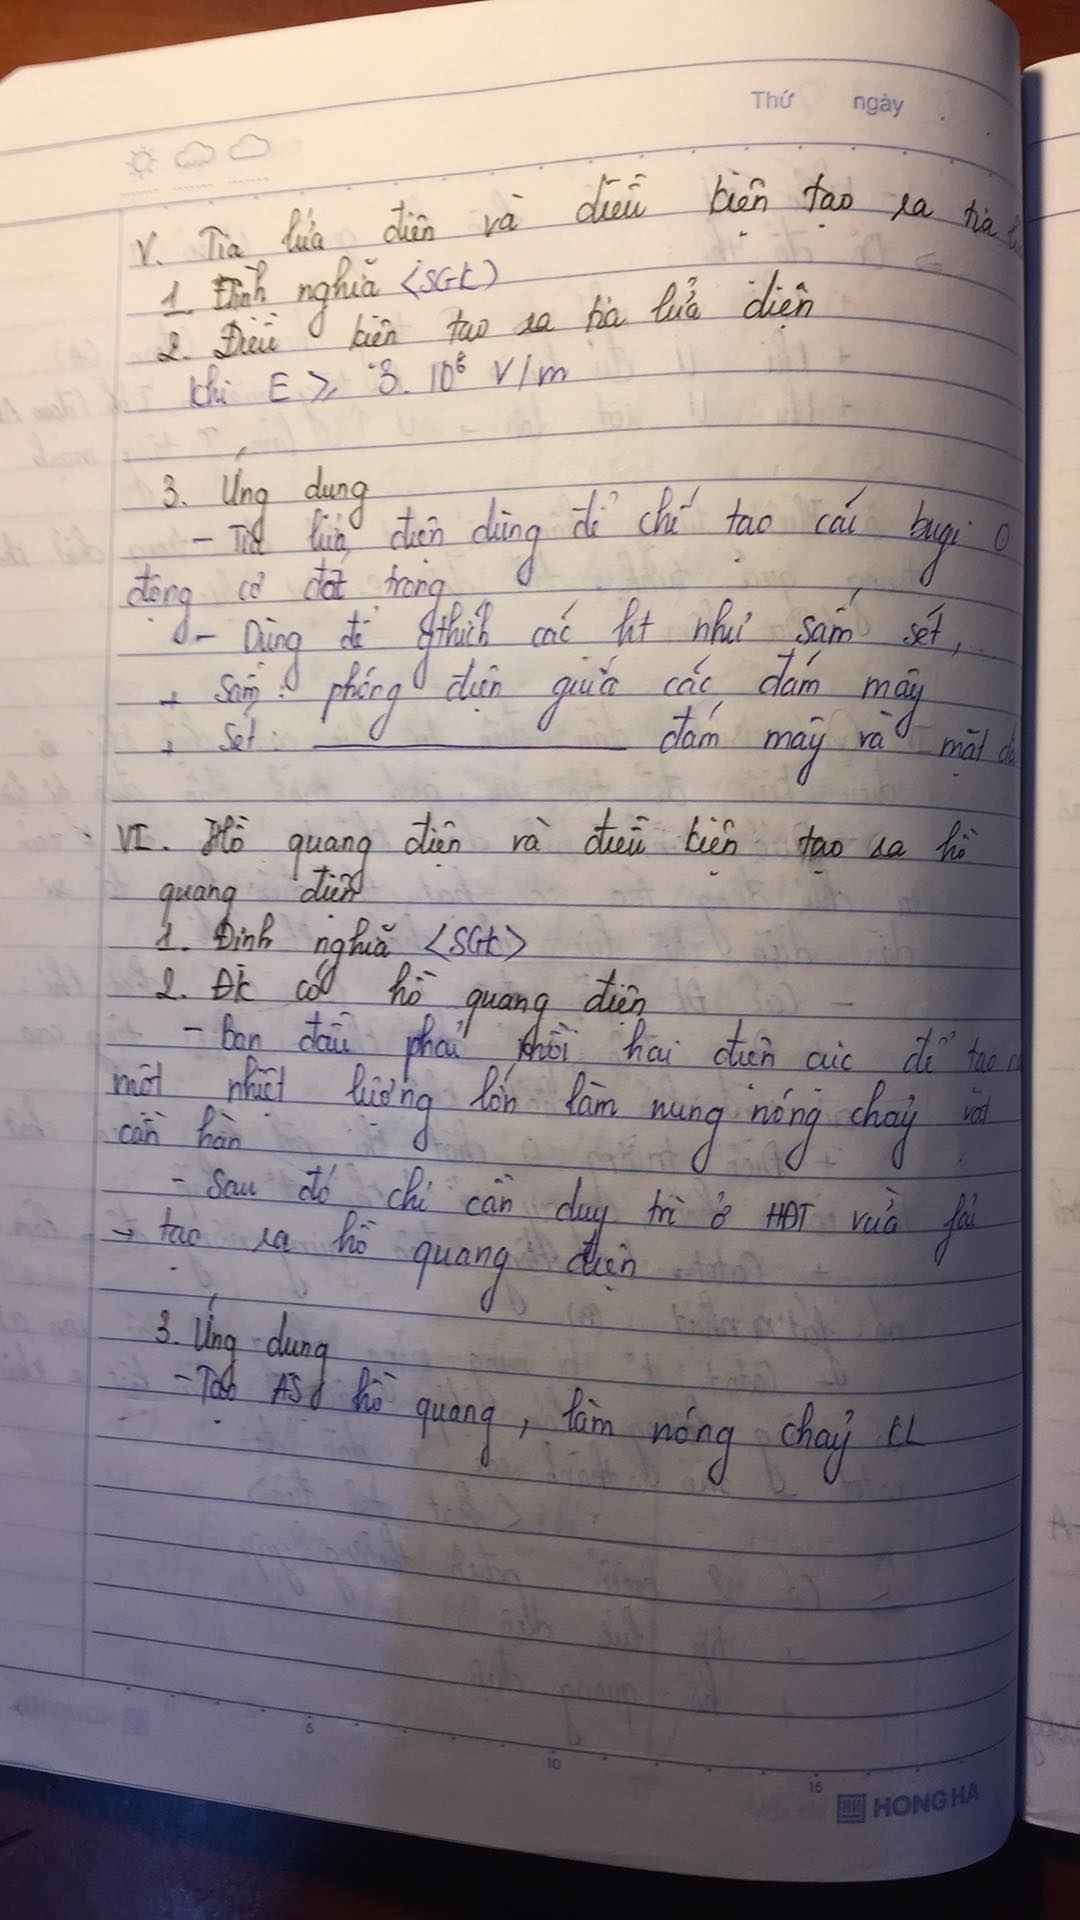 Thứ ngày
V. Tia lửa điện và điều kiện tạo ra tia
1. Định nghĩa <SGK>
2. Điều kiện tạo ra tia lửa điện
khi E ≥ 3. 10⁶ V/m
3. Ứng dụng
- Tia lửa điện dùng để chế tạo cái bugi ở
động cơ đốt trong
- Dùng để gthích các ht như sấm sét,...
+ Sấm: phóng điện giữa các đám mây
+ Sét: ________ đám mây và mặt
VI. Hồ quang điện và điều kiện tạo ra hồ
quang điện
1. Định nghĩa <SGK>
2. ĐK có hồ quang điện
- Ban đầu phải mồi hai điện cực để tạo
một nhiệt lượng lớn làm nung nóng chảy vật
cần hàn
- Sau đó chỉ cần duy trì ở HĐT vừa fải
→ tạo ra hồ quang điện
3. Ứng dụng
- Tạo AS hồ quang, làm nóng chảy KL
5
10
15
HONG HA